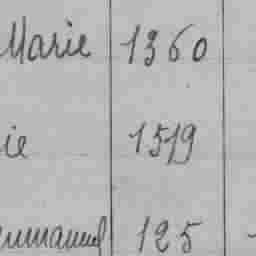 Marie 1360
ie 1519
emmanuel 125